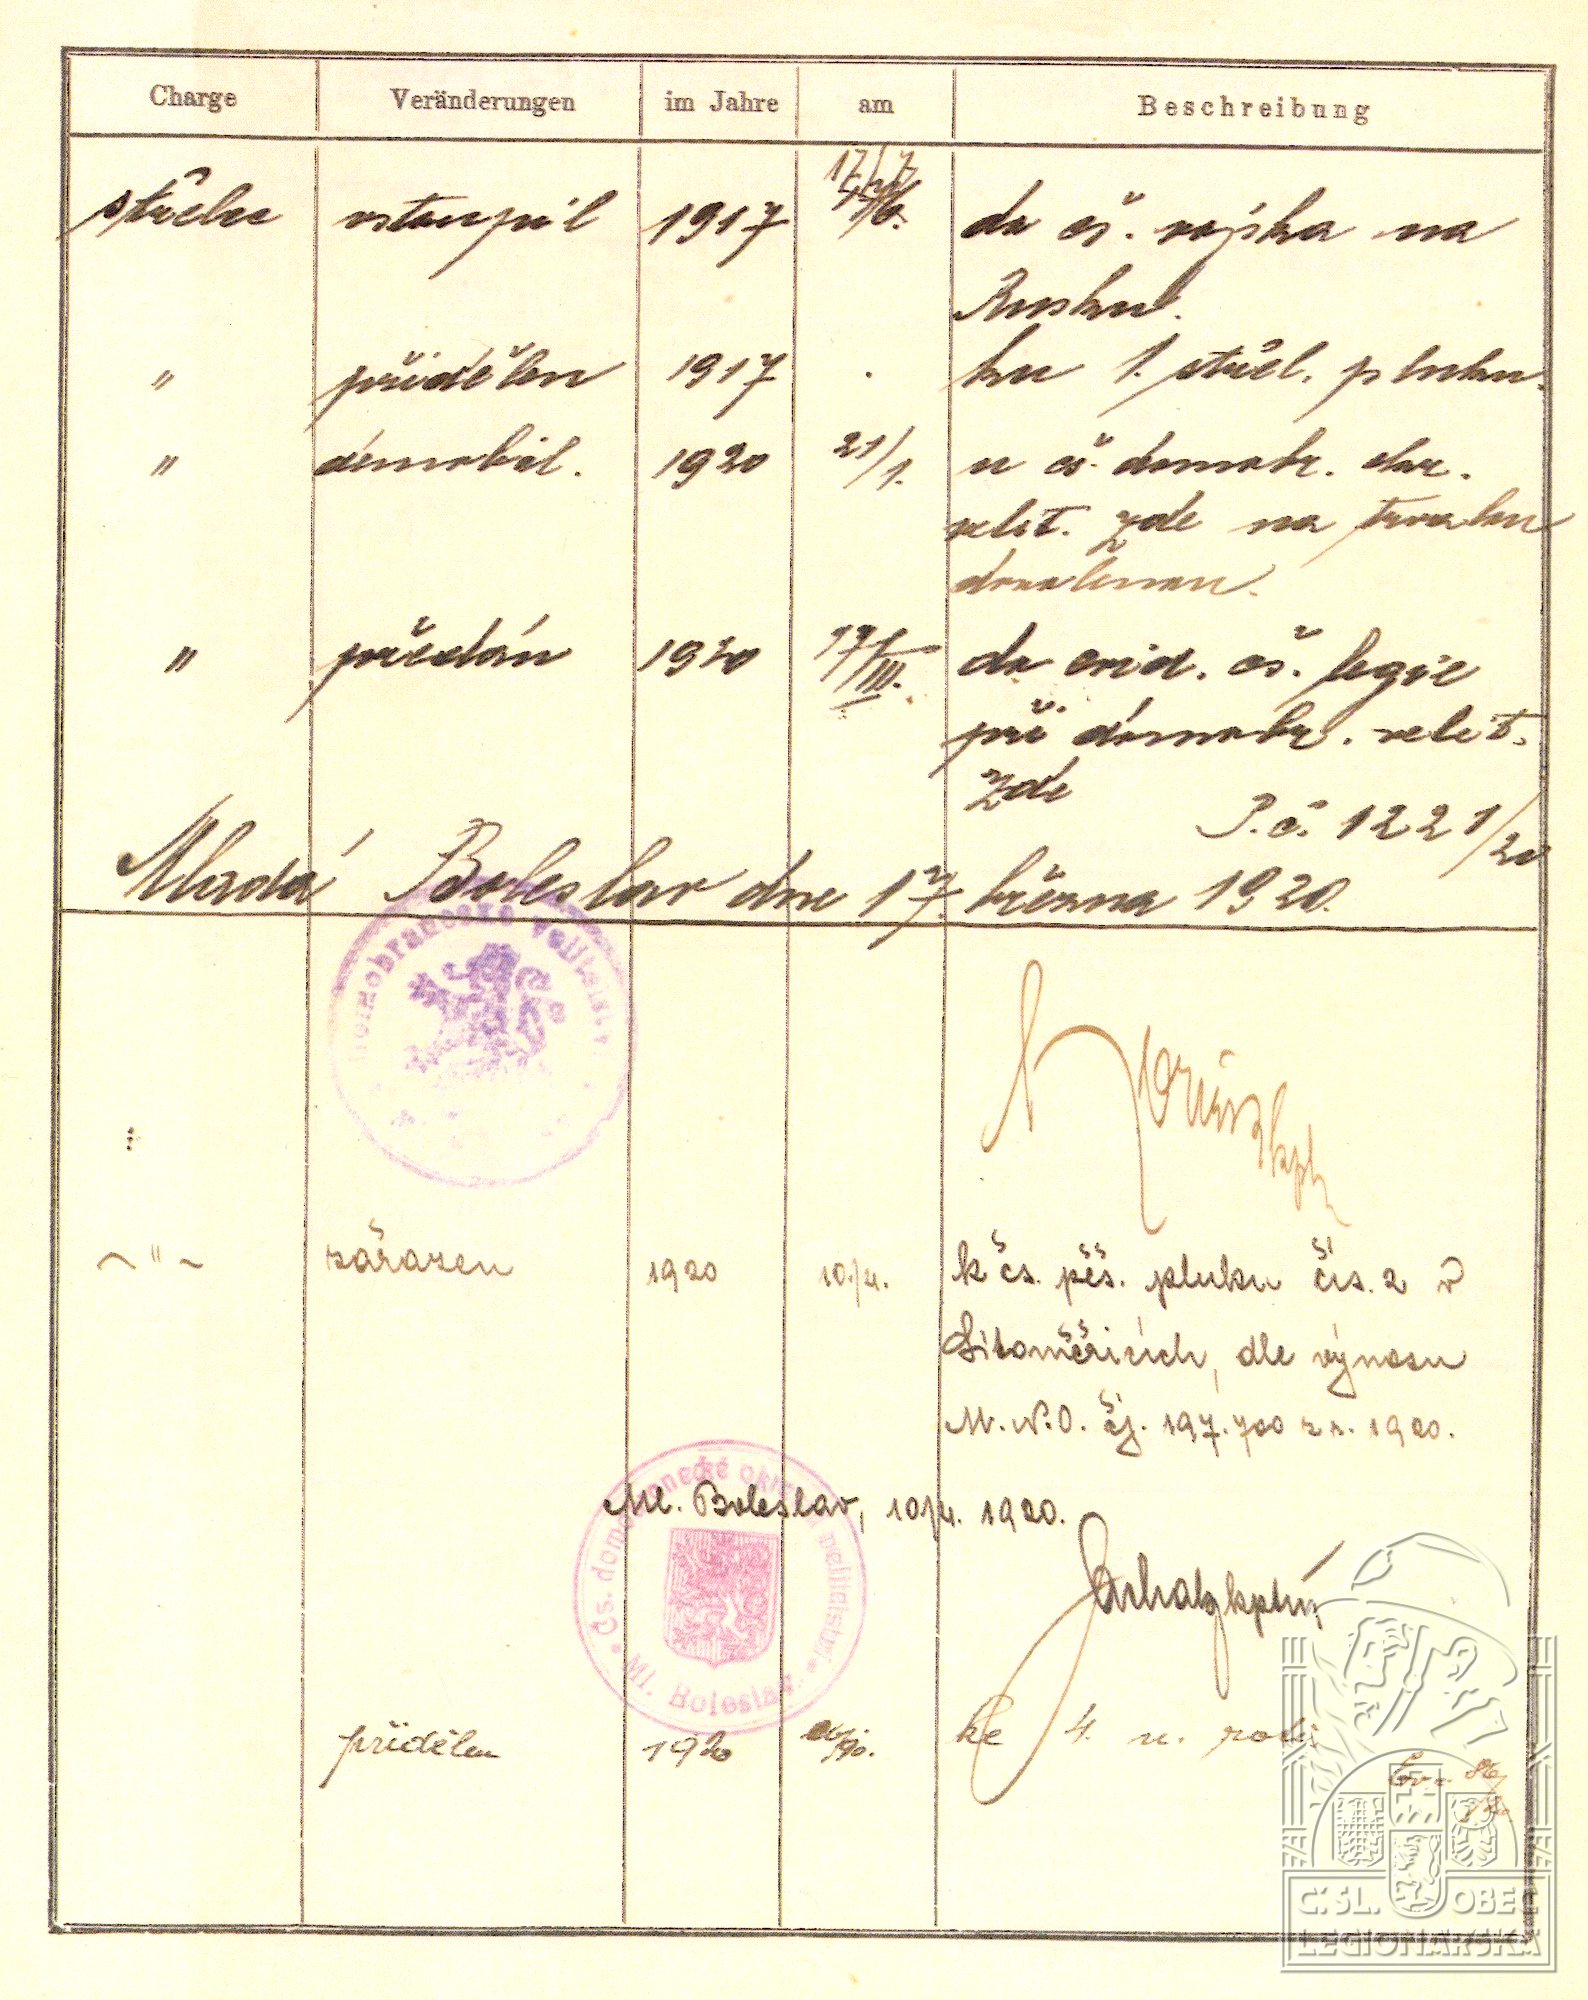 Charge Veränderungen im Jahre am Beschreibung
střelec vstoupil 1917 17/7 do čs. vojska na
Rusku.
" přidělen 1917 . ku 1. střel. pluku.
" démobil. 1920 21/1. u čs. domobr. okr.
velit. zde na trvalou
dovolenou.
" předán 1920 17/III. do evid. čs. legie
při domobr. velit.
zde
P.č. 1221/20
Mladá Boleslav dne 17. března 1920.
domobranecké velitelství
kpt
~"~ zařazen 1920 10./4. k čs. pěš. pluku čís. 2 v
Litoměřicích, dle výnosu
M.N.O. čj. 197.700 z r. 1920.
Ml. Boleslav, 10/4. 1920.
Čs. domobranecké okresní velitelství
Ml. Boleslav
přidělen 1920 ke 4. n. rotě
ČSL. OBEC
LEGIONÁŘSKÁ